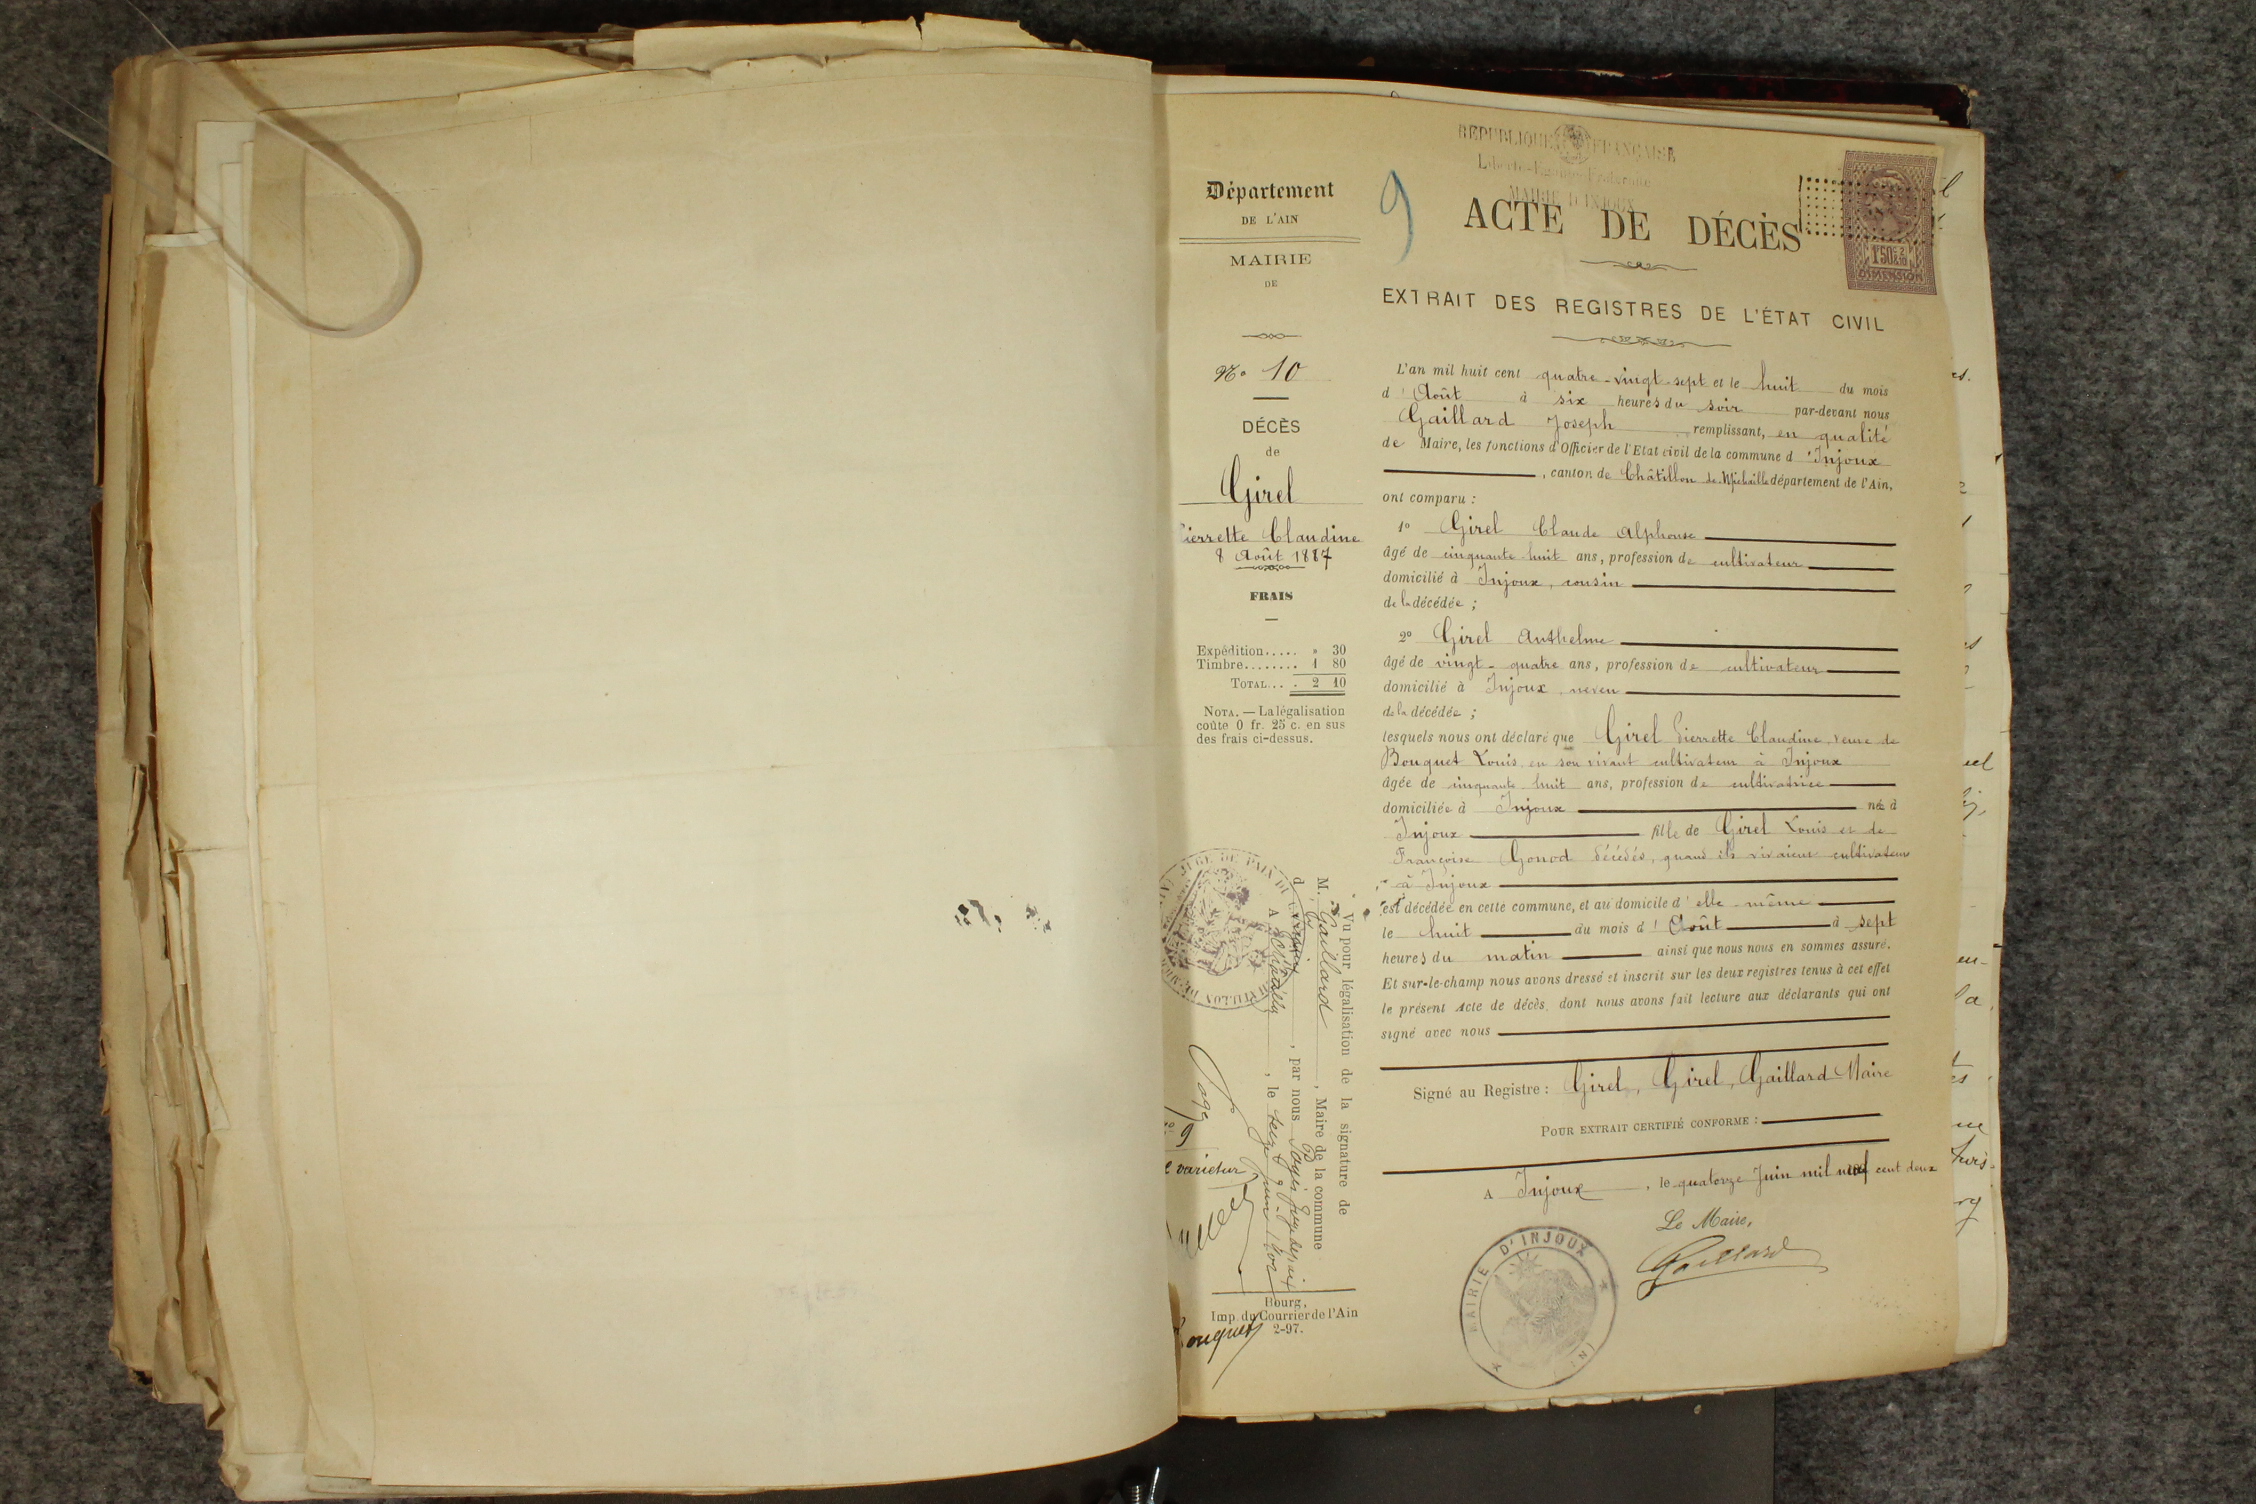 Département
DE L'AIN
MAIRIE
DE
N° 10
DÉCÈS
de
Girel
Pierrette Claudine
8 Août 1887
FRAIS
Expédition..... » 30
Timbre........ 1 80
TOTAL... . 2 10
NOTA. — La légalisation
coûte 0 fr. 25 c. en sus
des frais ci-dessus.
Vu pour légalisation de la signature de
M. Gaillard, Maire de la commune
d'Injoux, par nous Juge de paix
A Châtillon, le seize juin 1902
9
varietur
Bouquet
Bourg,
Imp. du Courrier de l'Ain
2-97.
9
RÉPUBLIQUE FRANÇAISE
Liberté-Égalité-Fraternité
MAIRIE D'INJOUX
ACTE DE DÉCÈS
1F50c 2/10
DIMENSION
EXTRAIT DES REGISTRES DE L'ÉTAT CIVIL
L'an mil huit cent quatre-vingt-sept et le huit du mois
d'Août à six heures du soir par-devant nous
Gaillard Joseph remplissant, en qualité
de Maire, les fonctions d'Officier de l'Etat civil de la commune d'Injoux
, canton de Châtillon de Michaille département de l'Ain,
ont comparu :
1° Girel Claude Alphonse
âgé de cinquante huit ans, profession de cultivateur
domicilié à Injoux, cousin
de la décédée ;
2° Girel Anthelme
âgé de vingt-quatre ans, profession de cultivateur
domicilié à Injoux, neveu
de la décédée ;
lesquels nous ont déclaré que Girel Pierrette Claudine, veuve de
Bouquet Louis, en son vivant cultivateur à Injoux
âgée de cinquante huit ans, profession de cultivatrice
domiciliée à Injoux née à
Injoux fille de Girel Louis et de
Françoise Gonod décédés, quand ils vivaient cultivateurs
à Injoux
est décédée en cette commune, et au domicile d'elle-même
le huit du mois d'Août à sept
heures du matin ainsi que nous nous en sommes assuré.
Et sur-le-champ nous avons dressé et inscrit sur les deux registres tenus à cet effet
le présent acte de décès, dont nous avons fait lecture aux déclarants qui ont
signé avec nous
Signé au Registre : Girel, Girel, Gaillard Maire
POUR EXTRAIT CERTIFIÉ CONFORME :
A Injoux, le quatorze Juin mil neuf cent deux
Le Maire,
Gaillard
MAIRIE D'INJOUX